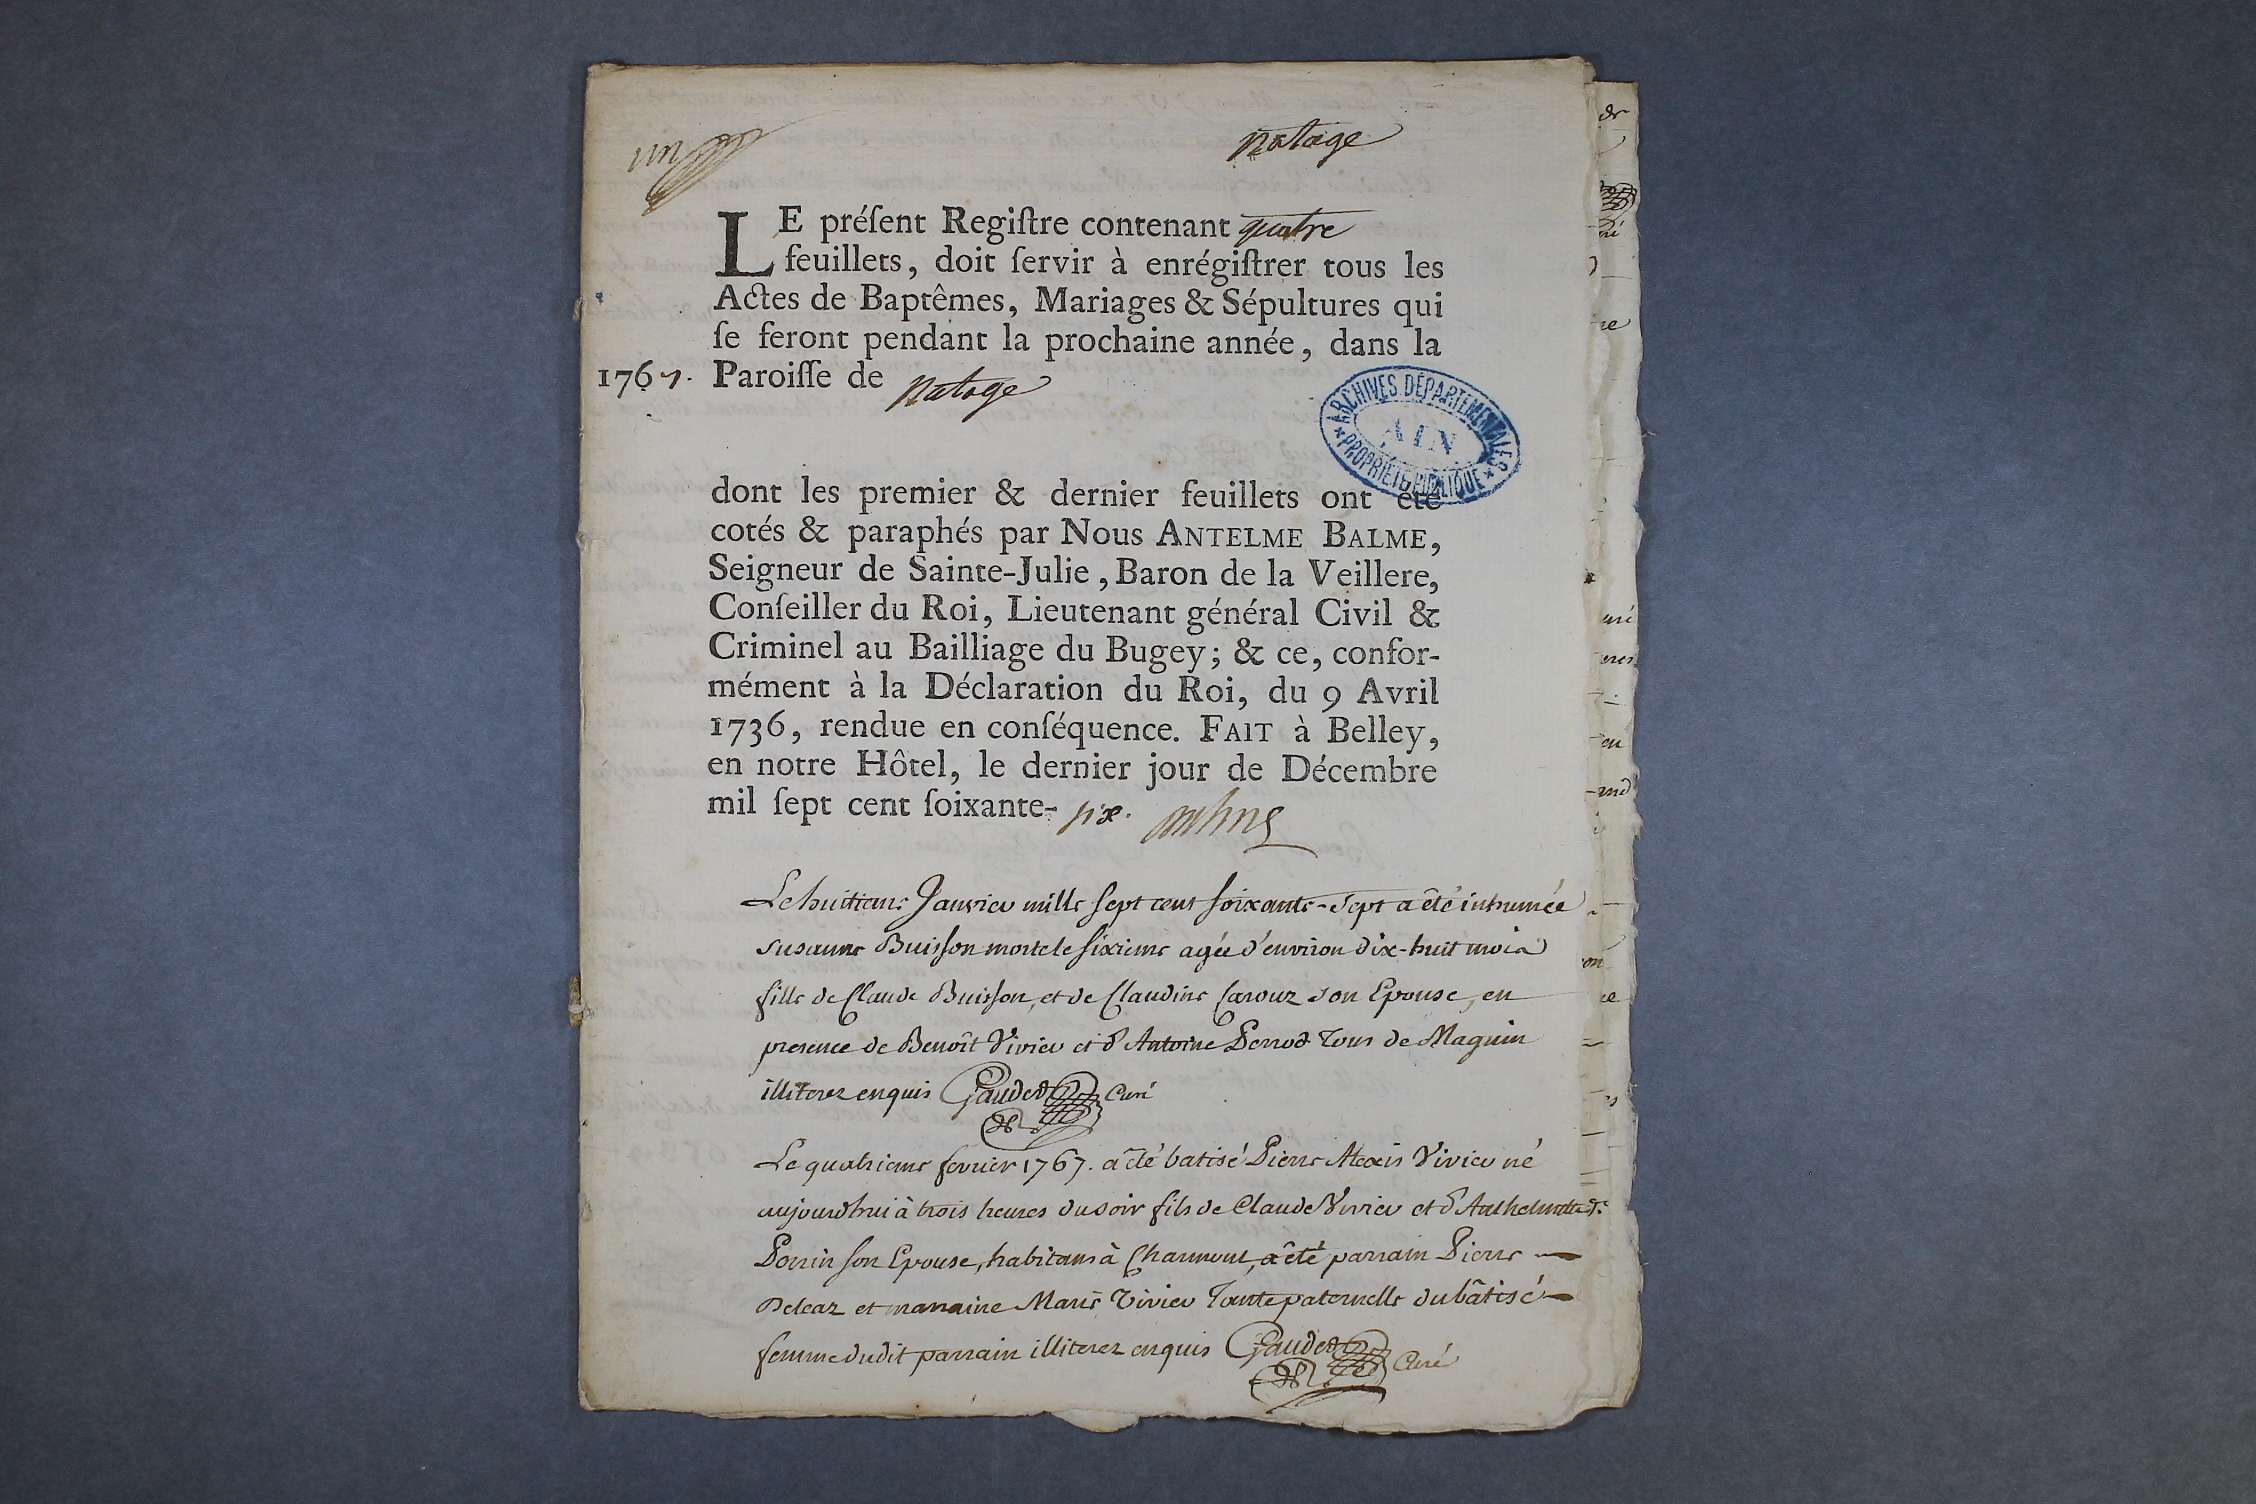 un
Natage
LE préſent Regiſtre contenant quatre
feuillets, doit ſervir à enrégiſtrer tous les
Actes de Baptêmes, Mariages & Sépultures qui
ſe feront pendant la prochaine année, dans la
1767. Paroiſſe de Natage
ARCHIVES DÉPARTEMENTALES
AIN
PROPRIÉTÉ PUBLIQUE
dont les premier & dernier feuillets ont été
cotés & paraphés par Nous ANTELME BALME,
Seigneur de Sainte-Julie, Baron de la Veillere,
Conſeiller du Roi, Lieutenant général Civil &
Criminel au Bailliage du Bugey; & ce, confor-
mément à la Déclaration du Roi, du 9 Avril
1736, rendue en conſéquence. FAIT à Belley,
en notre Hôtel, le dernier jour de Décembre
mil ſept cent ſoixante-six.
Le huitieme Janvier mille sept cent soixante-sept a été inhumée
susanne Buisson morte le sixieme agée d'environ dix-huit mois
fille de Claude Buisson, et de Claudine Carouz son Epouse, en
presence de Benoît Vivier et d'Antoine Perrod Tous de Magnin
illiterez enquis Gaudet Curé
Le quatrieme fevrier 1767. a été batisé Pierre Alexis Vivier né
aujourdhui à trois heures du soir fils de Claude Vivier et d'Anthelmette
Perrin son Epouse, habitans à Charmont, a été parrain Pierre
Deleaz et marraine Marie Vivier Tante paternelle du bâtisé
femme dudit parrain illiterez enquis Gaudet Curé